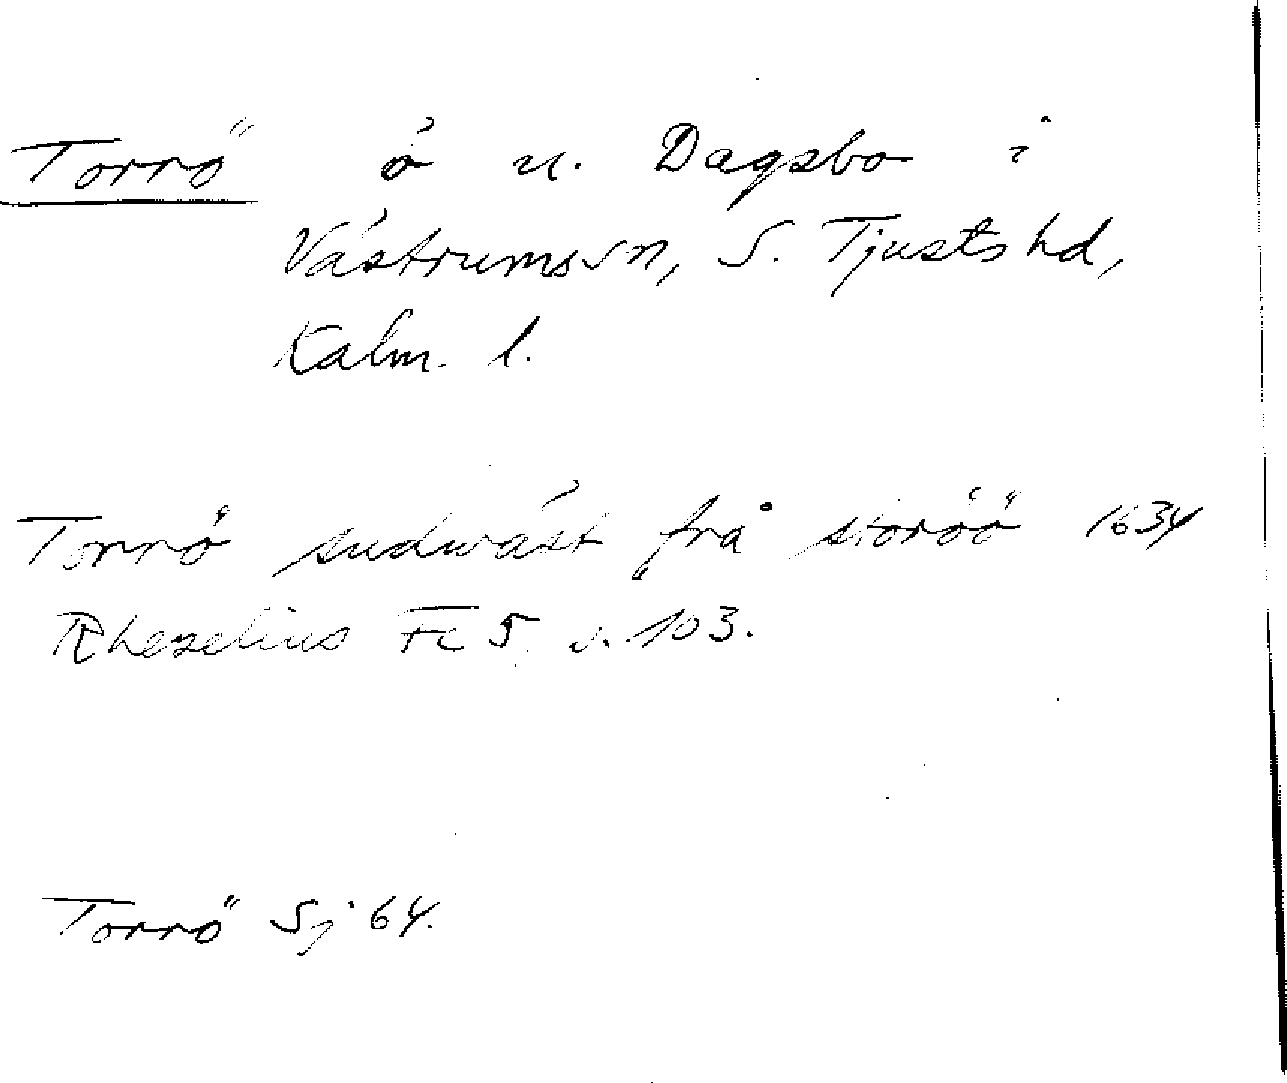 Torrö ö u. Dagsbo i
Västrums sn, S. Tjusts hd,
Kalm. l.
Torrö sudwäst frå storöö 1634
Rhezelius Fc 5 s. 103.
Torrö Sj 64.